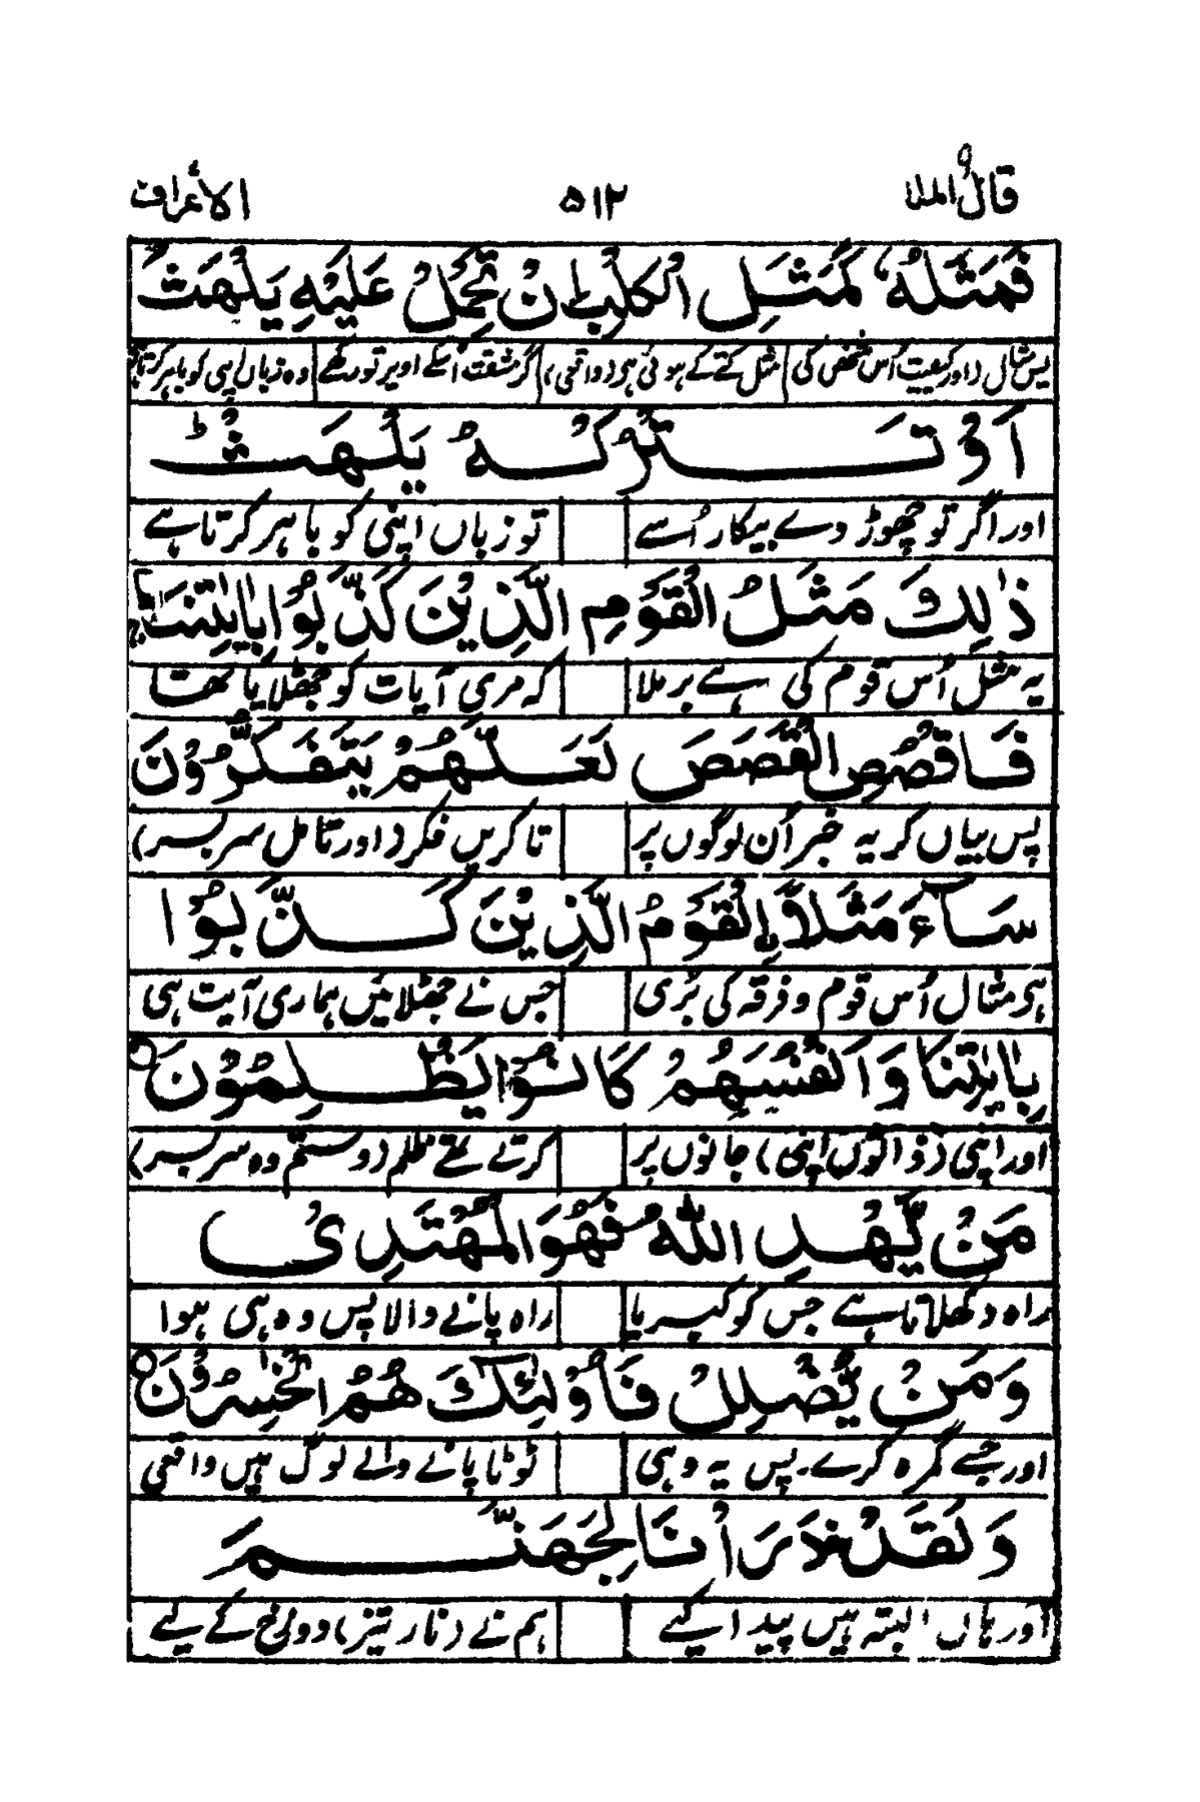 قال الملا ۹ ۵۱۲ الأعراف
فَمَثَلُهٗ كَمَثَلِ الْكَلْبِ اِنْ تَحْمِلْ عَلَيْهِ يَلْهَثْ
پس مثال (اور کیفیت اُس شخص کی مثل کتے کے ہوئی ہی (واقعی) گر مشقت اُسکے اوپر تو رکھے وہ زباں اپنی کو باہر کرتا ہے
اَوْ تَتْرُكْهُ يَلْهَثْ ؕ
اور اگر تو چھوڑ دے بیکار اُسے تو زباں اپنی کو باہر کرتا ہے
ذٰلِكَ مَثَلُ الْقَوْمِ الَّذِيْنَ كَذَّبُوْا بِاٰيٰتِنَا ۚ
یہ مثل اُس قوم کی ہے برملا کہ مری آیات کو جھٹلایا تھا
فَاقْصُصِ الْقَصَصَ لَعَلَّهُمْ يَتَفَكَّرُوْنَ
پس بیاں کر یہ خبر اُن لوگوں پر تا کریں فکر (اور تامل سربسر)
سَآءَ مَثَلًا اِلْقَوْمُ الَّذِيْنَ كَذَّبُوْا
ہی مثال اُس قوم و فرقہ کی بُری جس نے جھٹلائیں ہماری آیت ہی
بِاٰيٰتِنَا وَاَنْفُسَهُمْ كَانُوْا يَظْلِمُوْنَ ○
اور اپنی (ذوالتوں اپنی) جانوں پر کرتے تھے ظلم (و ستم وہ سربسر)
مَنْ يَّهْدِ اللّٰهُ فَهُوَ الْمُهْتَدِىْ
راہ دکھلاتا ہے جس کو کبریا راہ پانے والا پس وہ ہی ہوا
وَمَنْ يُّضْلِلْ فَاُولٰٓئِكَ هُمُ الْخٰسِرُوْنَ ○
اور جسے گمرہ کرے۔ پس یہ وہی ٹوٹا پانے والے لوگ ہیں واقعی
وَلَقَدْ ذَرَاْنَا لِجَهَنَّمَ
اور ہاں البتہ ہیں پیدا کیے ہم نے (نار تیز) دوزخ کے لیے